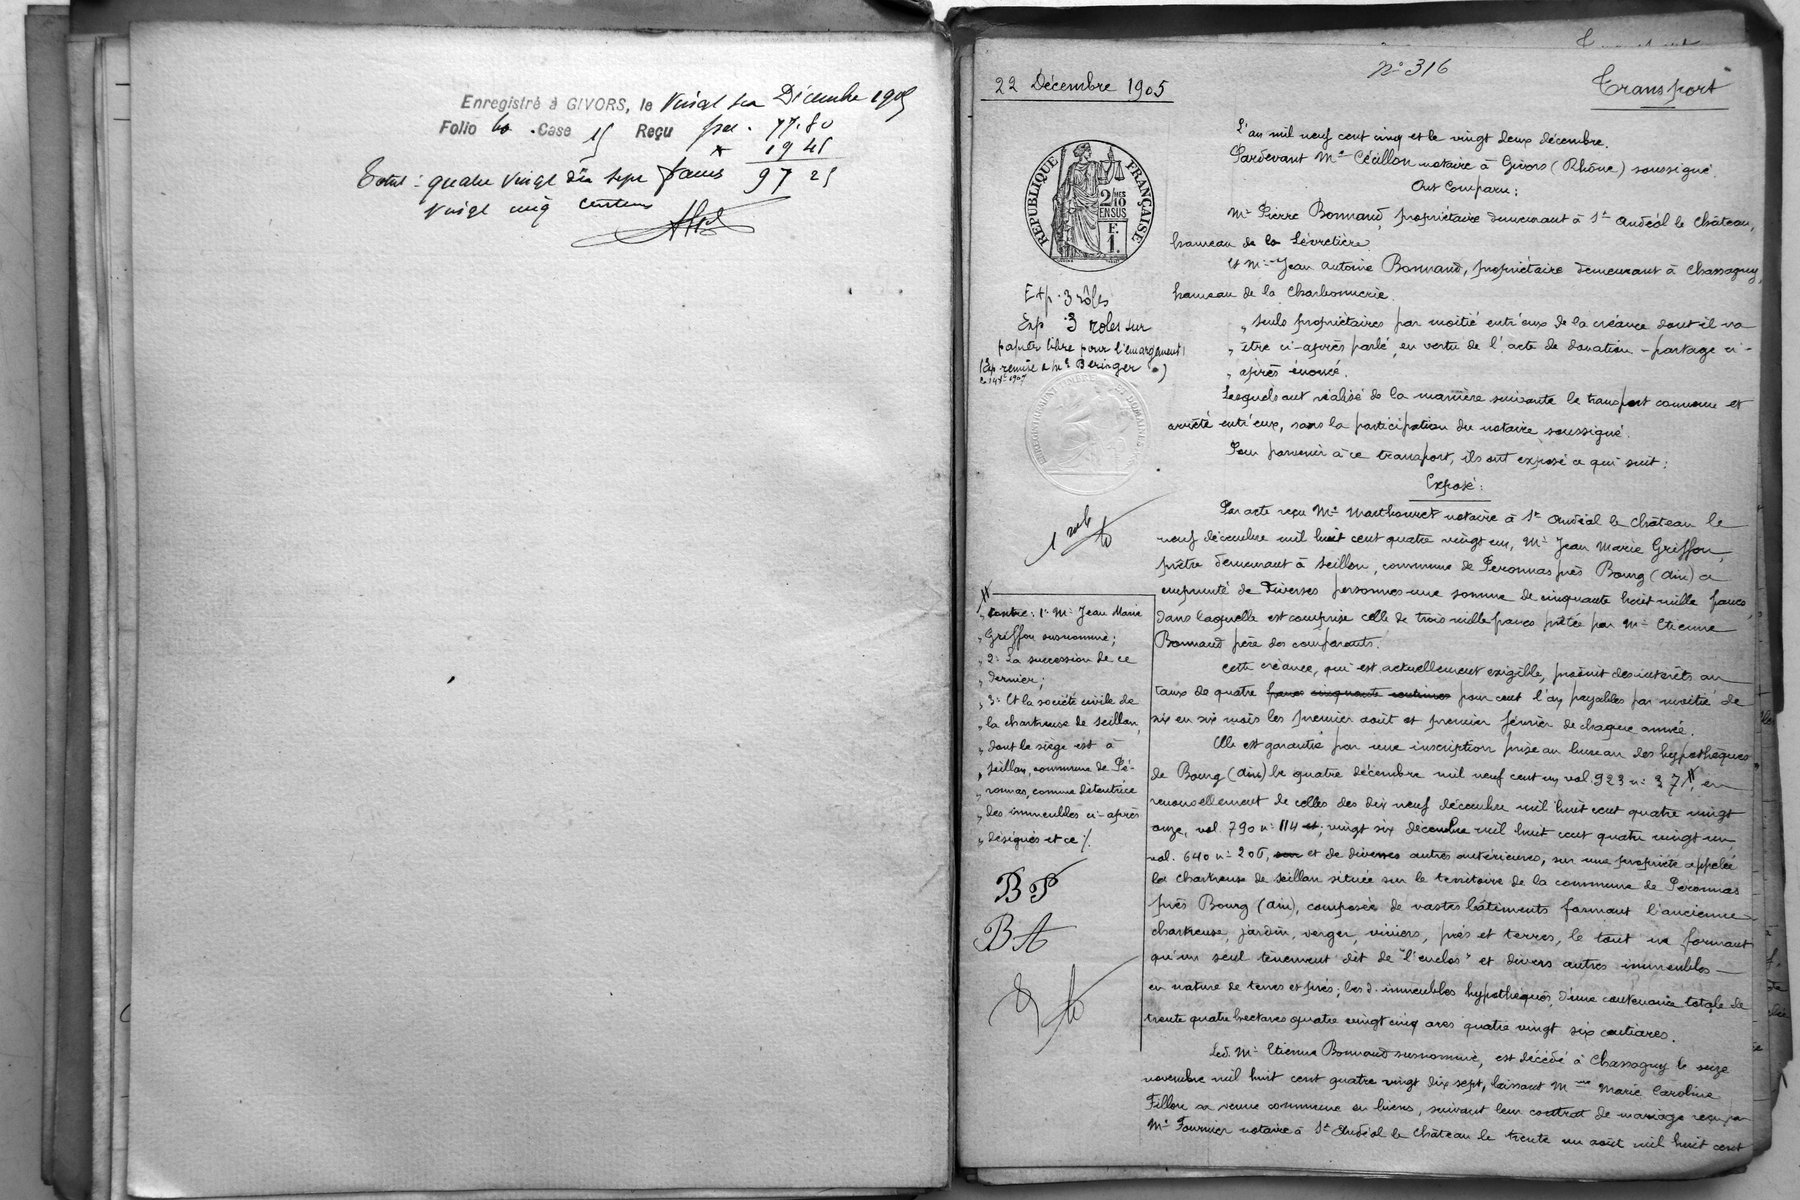 Enregistré à GIVORS, le vingt six Décembre 1905
Folio 60 Case 15 Reçu prel. 77.80
19 45
Total : quatre vingt dix sept francs 97 25
vingt cinq centimes
N° 316
22 Décembre 1905
Transport
RÉPUBLIQUE FRANÇAISE
2/10 EN SUS
F. 1.
L'an mil neuf cent cinq et le vingt deux décembre.
Pardevant Me Cécillon notaire à Givors (Rhône) soussigné.
Ont Comparu :
Mr Pierre Bonnand, propriétaire demeurant à St Andéol le Château,
hameau de la Lévretière.
Et Mr Jean Antoine Bonnand, propriétaire demeurant à Chassagny,
hameau de la Charbonnerie.
„ seuls propriétaires par moitié entr'eux de la créance dont il va
„ être ci-après parlé, en vertu de l'acte de donation - partage ci-
„ après énoncé.
Lesquels ont réalisé de la manière suivante le transport convenu et
arrêté entr'eux, sans la participation du notaire soussigné.
Pour parvenir à ce transport, ils ont exposé ce qui suit :
Exposé :
Par acte reçu Me Marthouret notaire à St Andéol le Château le
neuf décembre mil huit cent quatre vingt un, Mr Jean Marie Griffon,
prêtre demeurant à Seillon, commune de Peronnas près Bourg (Ain) a
emprunté de diverses personnes une somme de cinquante huit mille francs,
dans laquelle est comprise celle de trois mille francs prêtée par Mr Etienne
Bonnand père des comparants.
Cette créance, qui est actuellement exigible, produit des intérêts au
taux de quatre francs cinquante centimes pour cent l'an payables par moitié de
six en six mois les premier août et premier février de chaque année.
Elle est garantie par une inscription prise au bureau des hypothèques
de Bourg (Ain) le quatre décembre mil neuf cent un vol. 923 n° 37, // en
renouvellement de celles des dix neuf décembre mil huit cent quatre vingt
onze, vol. 790 n° 114 et, vingt six décembre mil huit cent quatre vingt un
vol. 640 n° 206, sur et de diverses autres antérieures, sur une propriété appelée
la Chartreuse de Seillon située sur le territoire de la commune de Peronnas
près Bourg (Ain), composée de vastes bâtiments formant l'ancienne
chartreuse, jardin, verger, viviers, prés et terres, le tout ne formant
qu'un seul tènement dit de "l'enclos" et divers autres immeubles
en nature de terres et prés ; les d. immeubles hypothéqués, d'une contenance totale de
trente quatre hectares quatre vingt cinq ares quatre vingt six centiares.
Led. Mr Etienne Bonnand susnommé, est décédé à Chassagny le seize
novembre mil huit cent quatre vingt dix sept, laissant Mme Marie Caroline
Fillon sa veuve commune en biens, suivant leur contrat de mariage reçu par
Me Fournier notaire à St Andéol le Château le trente un août mil huit cent
Exp. 3 rôles
Exp 3 roles sur
papier libre pour l'émargement
(Exp remise à Me Beringer)
1 rôle
//
„ contre : 1° Mr Jean Marie
„ Griffon susnommé ;
„ 2° La succession de ce
„ dernier ;
„ 3° Et la société civile de
„ la chartreuse de Seillon,
„ dont le siège est à
„ Seillon, commune de Pé-
„ ronnas, comme détentrice
„ des immeubles ci-après
„ désignés et ce /.
BP
BA